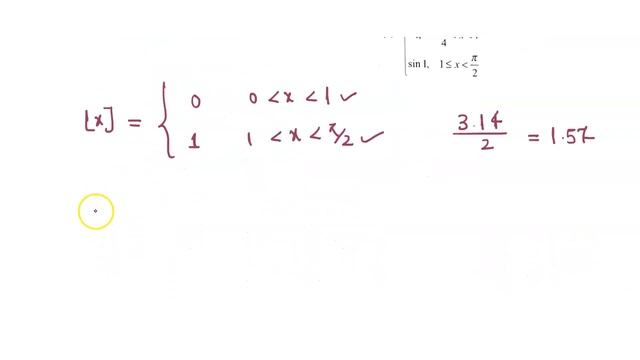 4
sin 1, 1 ≤ x < π/2
[x] = { 0 0 < x < 1 ✓
1 1 < x < π/2 ✓
3.14/2 = 1.57